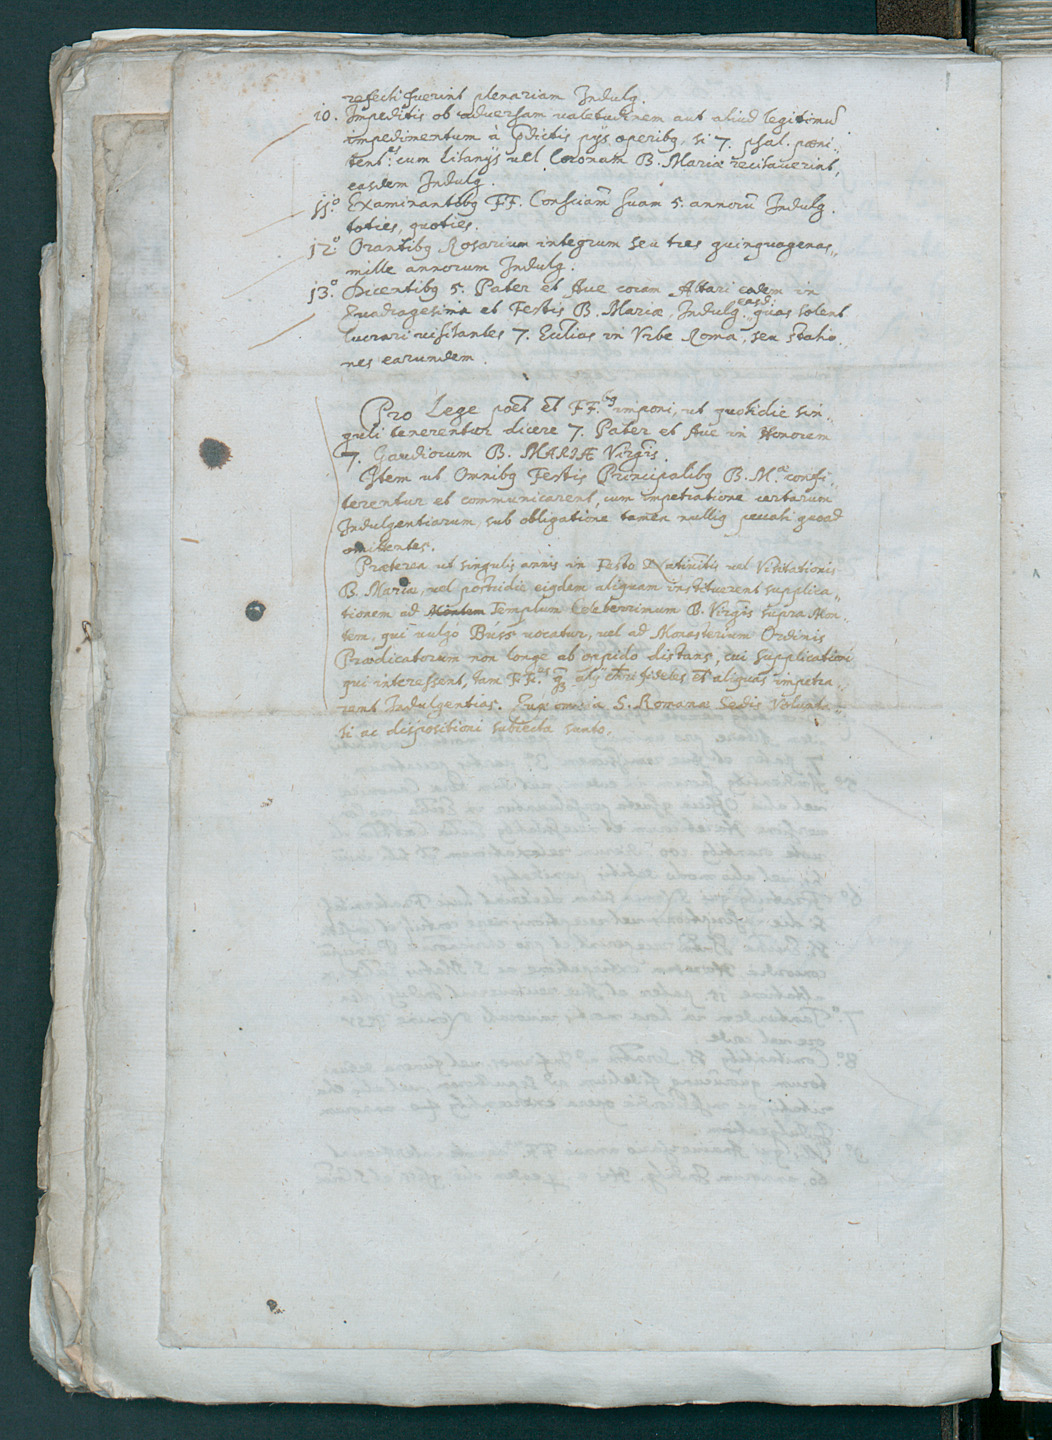 refecti fuerint plenariam Indulg.
10. Impeditis ob adversam valetudinem aut aliud legitimū
impedimentum à p̄dictis pijs operibꝫ, si 7. psal. pœni„
tent.es cum Litanijs vel Coronam B. Mariæ recitaverint,
easdem Indulg.
11.o Examinantibꝫ FF. Consciam̄ suam 5. annorū Indulg.
toties, quoties.
12.o Orantibꝫ Rosarium integrum seu tres quinquagenas„
mille annorum Indulg.
13.o Dicentibꝫ 5. Pater et Ave coram Altari eodem in
Quadragesima et Festis B. Mariæ, Indulg. easd. quas solent
lucrari visitantes 7. Ecclias in Vrbe Roma, seu statio„
nes earundem.
Pro Lege poēt et FF.bꝫ imponi, ut quotidie sin„
guli tenerentur dicere 7. Pater et Ave in Honorem
7. Gaudiorum B. MARIÆ Virgīs.
Item ut Omnibꝫ Festis Principalibꝫ B. M.æ confi„
terentur et communicarent, cum impetratione certarum
Indulgentiarum, sub obligatione tamen nulliꝫ peccati quoad
omittentes.
Præterea ut singulis annis in Festo Nativitis vel Visitationis
B. Mariæ, vel postridie eiꝫdem aliquam instituerent supplica„
tionem ad Montem Templum Celeberrimum B. Virgīs supra Mon„
tem, qui vulgò Büss vocatur, vel ad Monasterium Ordinis
Prædicatorum non longe ab oppido distans, cui supplicationi
qui interessent, tam FF.es q̄ꝫ alij Chrī fideles et aliquas impetra„
rent Indulgentias. omnia S. Romanæ Sedis Volunta„
ti ac dispositioni subiecta sunto.